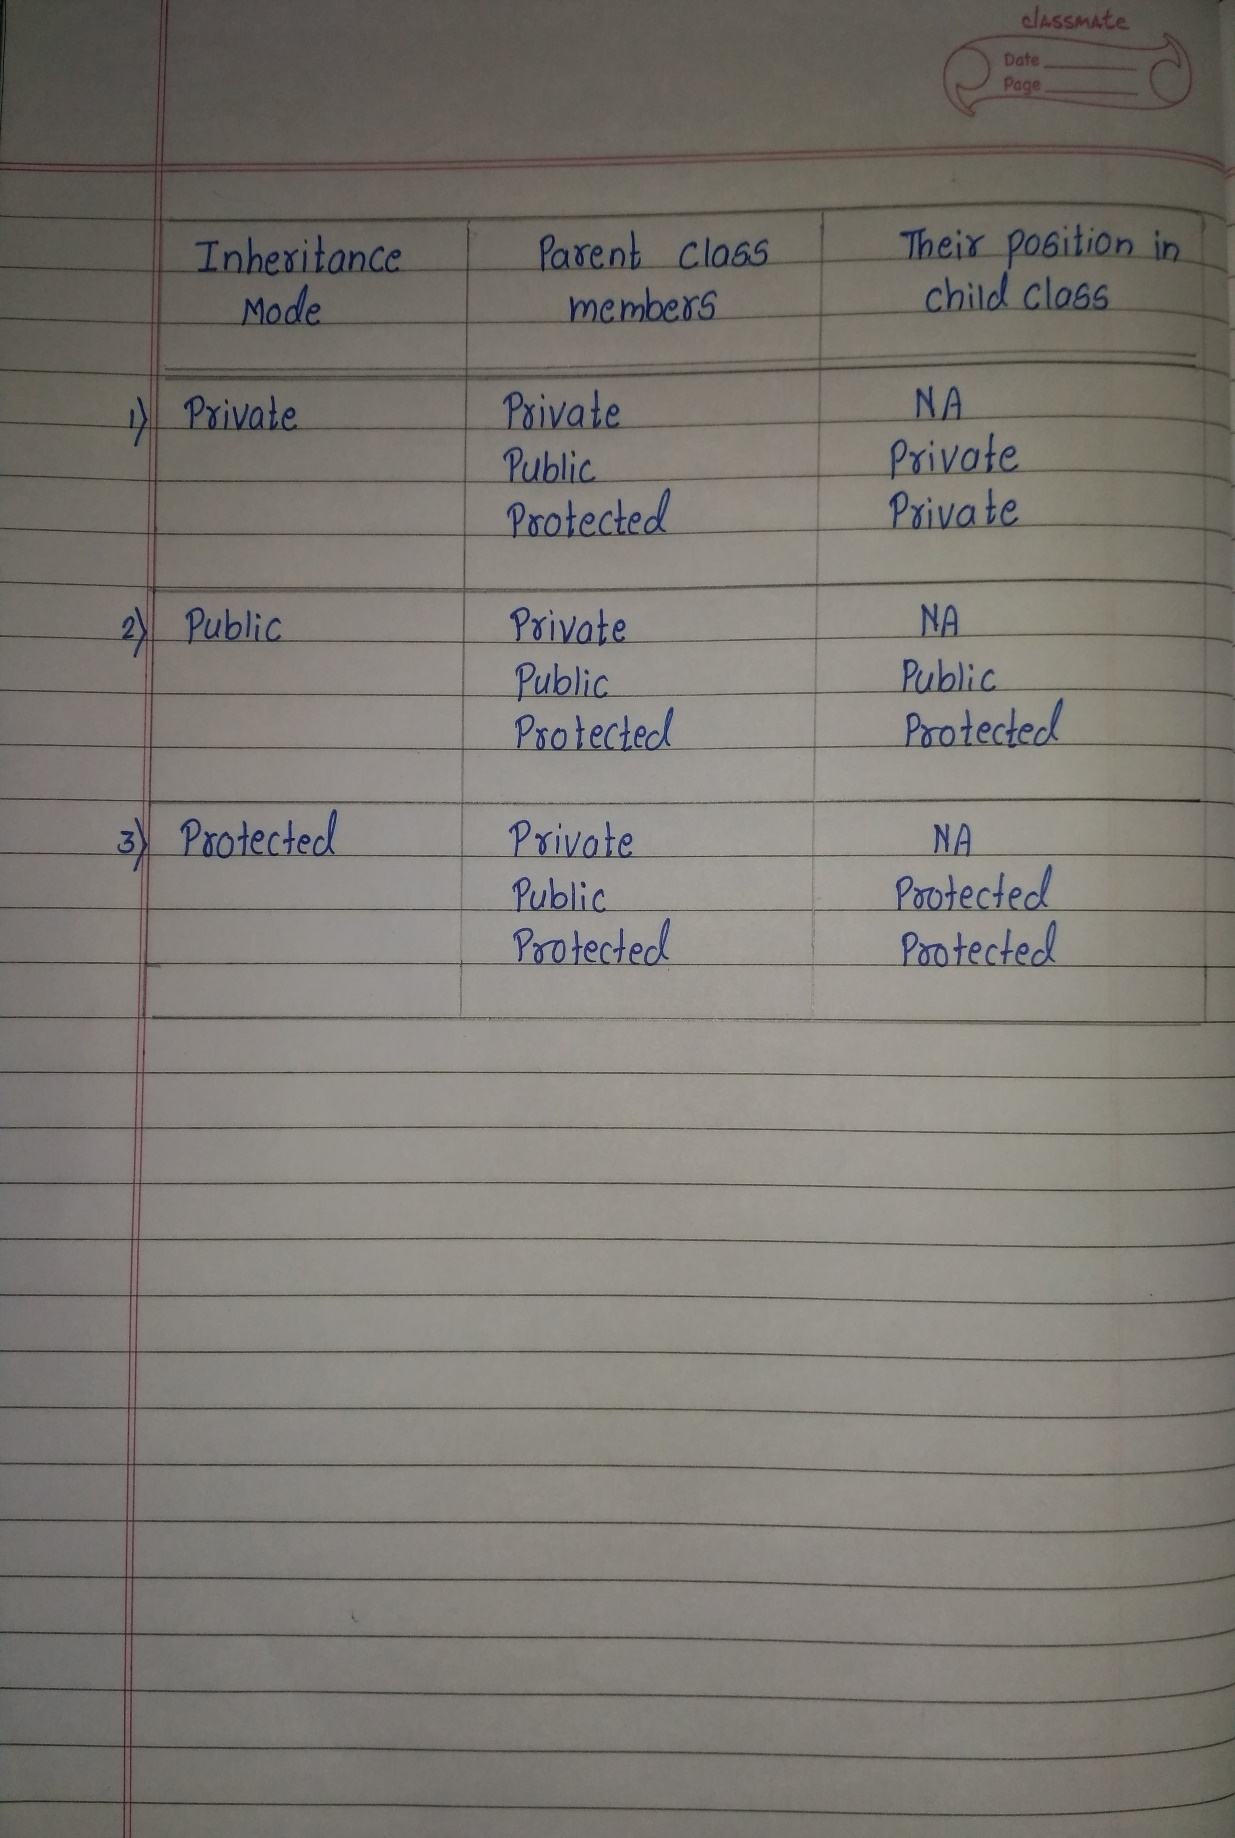 classmate
Date
Page
Inheritance Mode | Parent Class members | Their position in child class
1) Private | Private | NA
Public | Private
Protected | Private
2) Public | Private | NA
Public | Public
Protected | Protected
3) Protected | Private | NA
Public | Protected
Protected | Protected